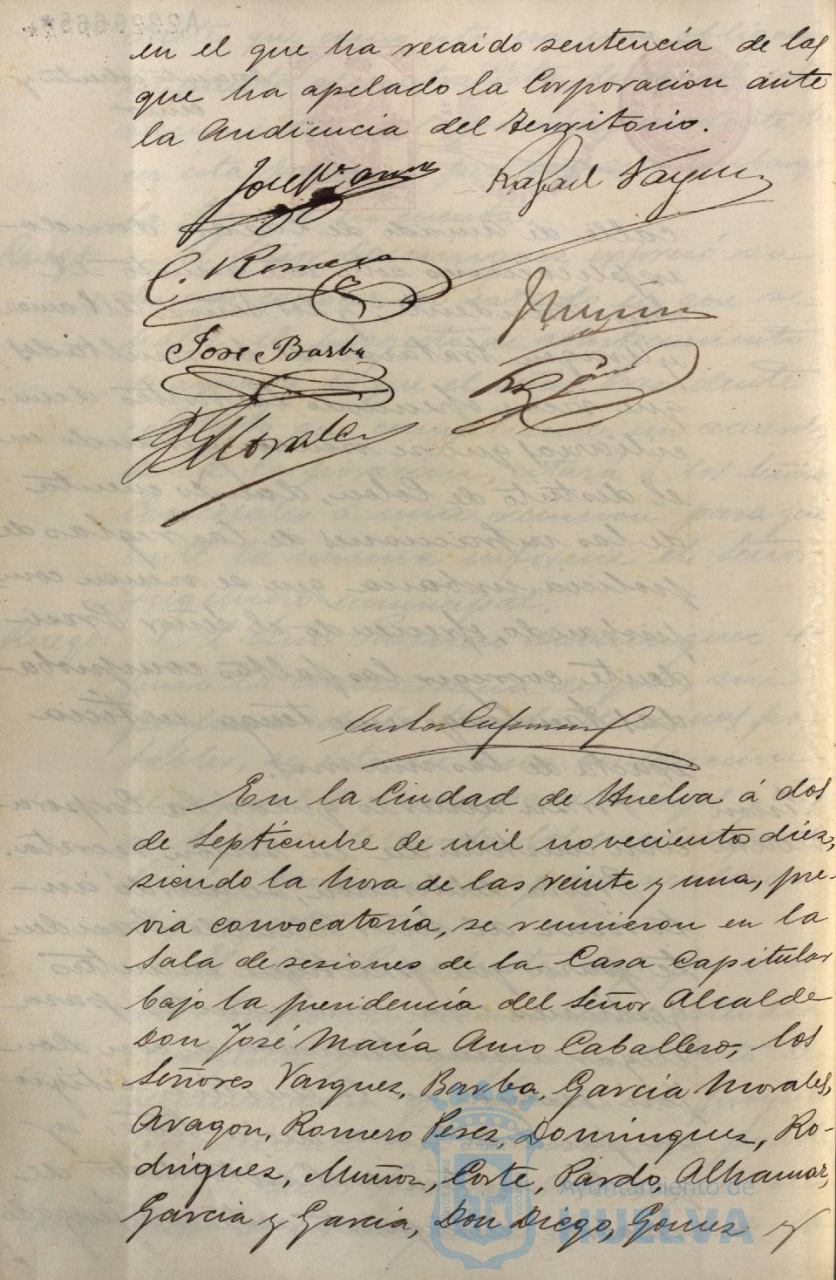 en el que ha recaido sentencia de las
que ha apelado la Corporacion ante
la Audiencia del Territorio.
Rafael Vazquez
C. Romero
José Barba
J. G. Morales
En la Ciudad de Huelva á dos
de Septiembre de mil novecientos diez,
siendo la hora de las veinte y una, pre-
via convocatoria, se reunieron en la
Sala de sesiones de la Casa Capitular
bajo la presidencia del Señor Alcalde
Don José María Amo Caballero, los
Señores Vazquez, Barba, Garcia Morales,
Aragon, Romero Perez, Dominguez, Ro-
driguez, Muñoz, Corte, Pardo, Alhamar,
Garcia y Garcia, Don Diego, Gomez y
Ayuntamiento de
HUELVA